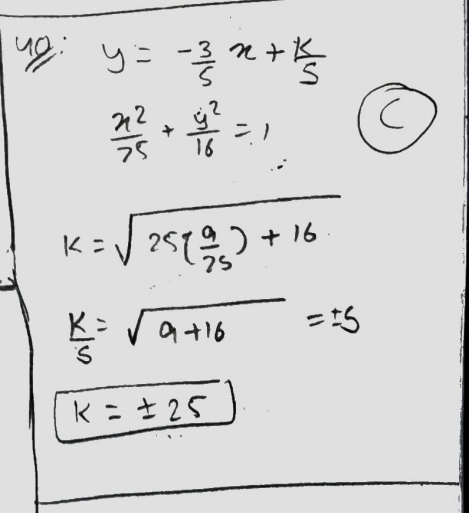 40: y = -3/5 x + K/5
x²/25 + y²/16 = 1
C
K = √25(9/25) + 16
K/5 = √9+16 = ±5
K = ± 25